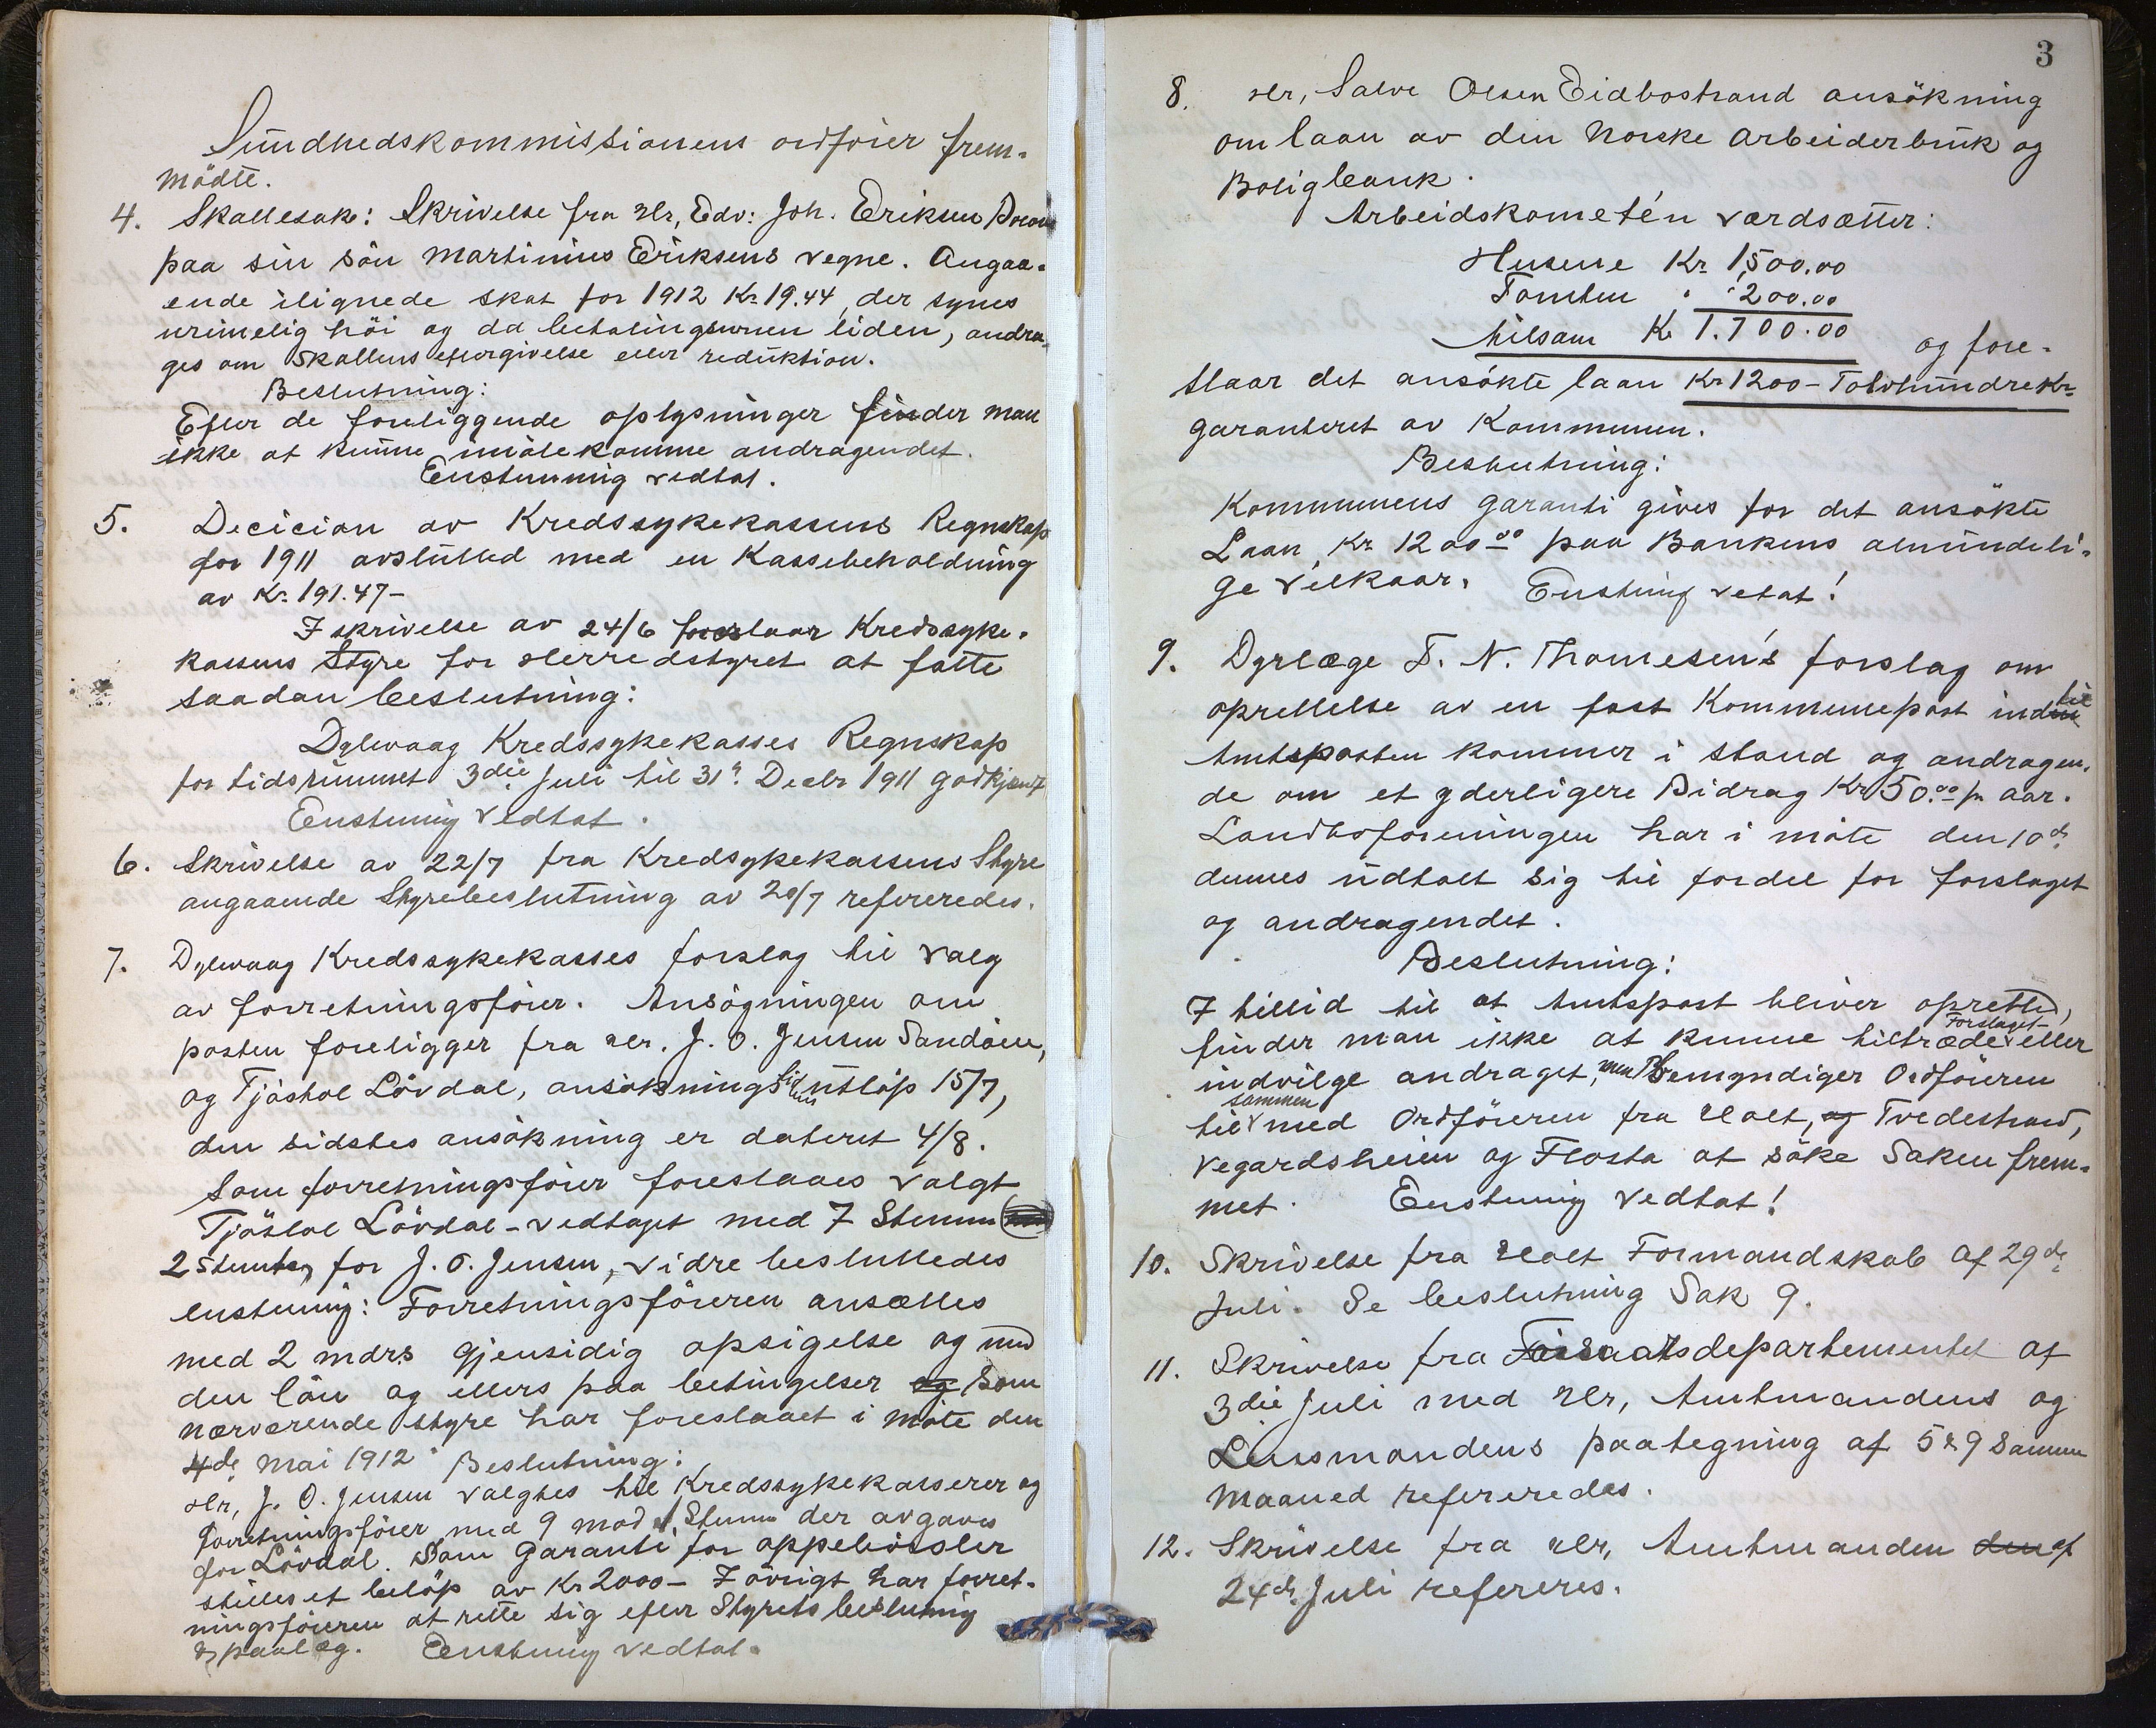 Sundhedskommissionens ordförer frem-
mödte.
4. Skattesak: Skrivelse fra Hr, Edv: Joh. Eriksen
paa sin sön Martinius Eriksens vegne. Angaa-
ende ilignede skat for 1912 Kr. 19.44, der synes
urimelig höi og da betalingsevnen liden, andra-
ges om Skattens eftergivelse eller reduktion.
Beslutning:
Efter de foreliggende oplysninger finder man
ikke at kunne imötekomme andragendet.
Enstemmig vedtat.
5. Decician av Kredssykekassens Regnskap
for 1911 avsluttet med en Kassebeholdning
av Kr. 191.47-
I skrivelse av 24/6 foreslaar Kredssyke-
kassens Styre for Herredstyret at fatte
saadan beslutning:
Dybvaag Kredssykekasses Regnskap
for tidsrummet 3die Juli til 31' Decbr 1911 godkjent
Enstemig Vedtat.
6. Skrivelse av 22/7 fra Kredsykekassens Styre
angaaende Styrebeslutning av 20/7 refereredes.
7. Dybvaag Kredssykekasses forslag til Valg
av forretningsförer. Ansögningen om
posten foreligger fra Hr. J. O. Jensen Sandöen,
og Tjöstol Lövdal, ansökningstidens utlöp 15/7,
den sidstes ansökning er dateret 4/8.
Som forretningsförer foreslaaes valgt
Tjöstol Lövdal - vedtaget med 7 Stemmer
2 stemte for J. O. Jensen, vidre besluttedes
enstemig: Forretningsföreren ansættes
med 2 mdrs gjensidig opsigelse og med
den lön og ellers paa betingelser og som
nærværende styre har foreslaaet i möte den
4de Mai 1912 Beslutning:
Hr, J. O. Jensen valgtes til Kredssykekasserer og
Forretningsförer med 9 mod 1 Stemme der avgaves
for Lövdal. Som Garanti for oppebörsler
stilles et belöp av Kr 2000- I övrigt har forret-
ningsföreren at rette sig efter Styrets beslutning
& paalæg. Enstemig vedtat.
3
8. Hr, Salve Olsen Eidbostrand ansökning
om laan av den Norske Arbeiderbruk og
Boligbank.
Arbeidskometén værdsætter:
Husene Kr 1,500.00
Tomten " " 200.00
tilsam Kr 1.700.00 og fore-
slaar det ansökte laan Kr 1200 - Tolvhundre Kr-
garanteret av Kommunen.
Beslutning:
Kommunens garanti gives for det ansökte
Laan Kr 1200.00 paa Bankens almindeli-
ge Vilkaar. Enstemig vetat!
9. Dyrlæge T. N. Thomesen's forslag om
oprettelse av en fast Kommunepost indtil
Amtsposten kommer i stand og andragen-
de om et yderligere Bidrag Kr 50.00 pr aar.
Landboforeningen har i möte den 10de
dennes udtalt sig til fordel for forslaget
og andragendet.
Beslutning:
I tillid til at Amtspost bliver oprettet,
finder man ikke at kunne tiltræde Forslaget eller
indvilge andraget, men bemyndiger Ordföreren
til sammen med Ordföreren fra Holt, og Tvedestrand,
Vegardsheien og Flosta at söke Saken frem-
met. Enstemig Vedtat!
10. Skrivelse fra Holt Formandskab af 29de
Juli. Se beslutning Sak 9.
11. Skrivelse fra departementet af
3die Juli med Hr, Amtmandens og
Lensmandens paategning af 5 & 9 Samme
Maaned refereredes.
12. Skrivelse fra Hr, Amtmanden den af
24de Juli refereres.